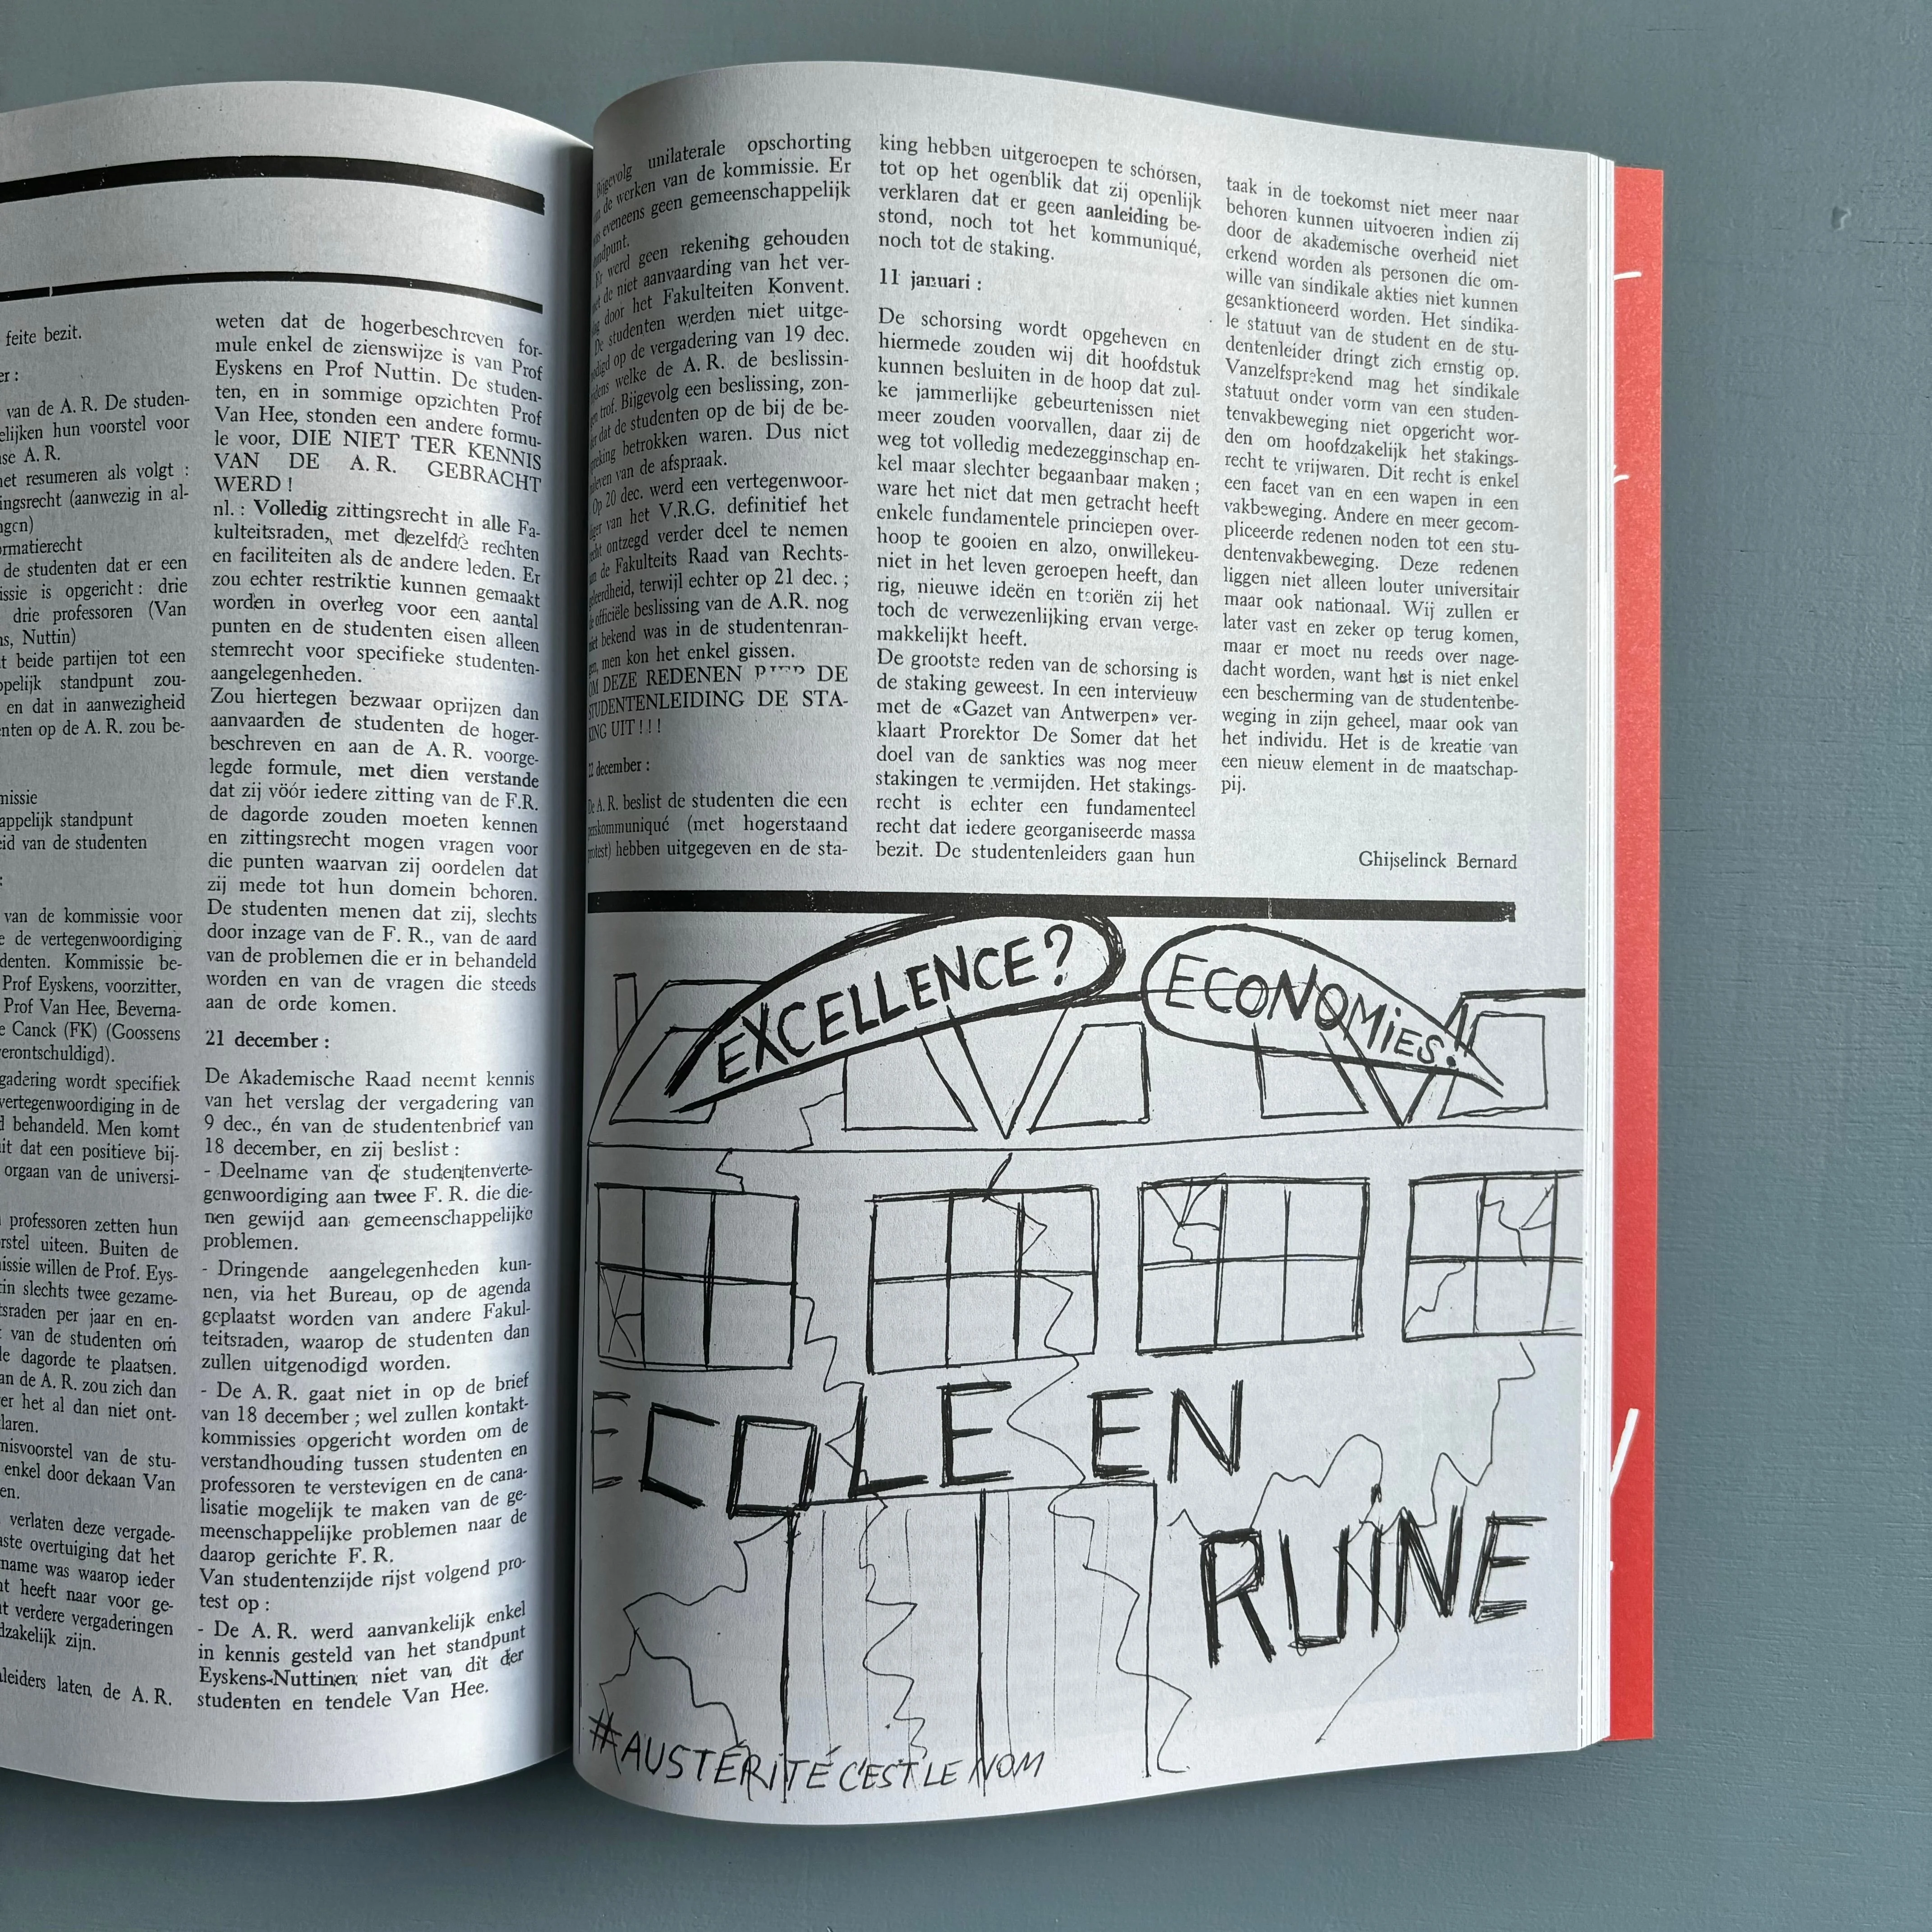 feite bezit.
van de A. R. De studen-
hun voorstel voor
A. R.
resumeren als volgt :
(aanwezig in al-
de studenten dat er een
is opgericht : drie
drie professoren (Van
Nuttin)
beide partijen tot een
standpunt zou-
en dat in aanwezigheid
op de A. R. zou be-
standpunt
van de studenten
van de kommissie voor
de vertegenwoordiging
Kommissie be-
Prof Eyskens, voorzitter,
Prof Van Hee, Beverna-
Canck (FK) (Goossens
wordt specifiek
in de
behandeld. Men komt
dat een positieve bij-
orgaan van de universi-
professoren zetten hun
uiteen. Buiten de
willen de Prof. Eys-
slechts twee gezame-
per jaar en en-
van de studenten om
dagorde te plaatsen.
de A. R. zou zich dan
het al dan niet ont-
van de stu-
enkel door dekaan Van
verlaten deze vergade-
overtuiging dat het
was waarop ieder
heeft naar voor ge-
verdere vergaderingen
zijn.
laten de A. R.
weten dat de hogerbeschreven for-
mule enkel de zienswijze is van Prof
Eyskens en Prof Nuttin. De studen-
ten, en in sommige opzichten Prof
Van Hee, stonden een andere formu-
le voor, DIE NIET TER KENNIS
VAN DE A. R. GEBRACHT
WERD !
nl. : Volledig zittingsrecht in alle Fa-
kulteitsraden, met dezelfde rechten
en faciliteiten als de andere leden. Er
zou echter restriktie kunnen gemaakt
worden in overleg voor een aantal
punten en de studenten eisen alleen
stemrecht voor specifieke studenten-
aangelegenheden.
Zou hiertegen bezwaar oprijzen dan
aanvaarden de studenten de hoger-
beschreven en aan de A. R. voorge-
legde formule, met dien verstande
dat zij vóór iedere zitting van de F.R.
de dagorde zouden moeten kennen
en zittingsrecht mogen vragen voor
die punten waarvan zij oordelen dat
zij mede tot hun domein behoren.
De studenten menen dat zij, slechts
door inzage van de F. R., van de aard
van de problemen die er in behandeld
worden en van de vragen die steeds
aan de orde komen.
21 december :
De Akademische Raad neemt kennis
van het verslag der vergadering van
9 dec., én van de studentenbrief van
18 december, en zij beslist :
- Deelname van de studentenverte-
genwoordiging aan twee F. R. die die-
nen gewijd aan gemeenschappelijke
problemen.
- Dringende aangelegenheden kun-
nen, via het Bureau, op de agenda
geplaatst worden van andere Fakul-
teitsraden, waarop de studenten dan
zullen uitgenodigd worden.
- De A. R. gaat niet in op de brief
van 18 december ; wel zullen kontakt-
kommissies opgericht worden om de
verstandhouding tussen studenten en
professoren te verstevigen en de cana-
lisatie mogelijk te maken van de ge-
meenschappelijke problemen naar de
daarop gerichte F. R.
Van studentenzijde rijst volgend pro-
test op :
- De A. R. werd aanvankelijk enkel
in kennis gesteld van het standpunt
Eyskens-Nuttinen niet van dit der
studenten en tendele Van Hee.
Bijgevolg unilaterale opschorting
de werken van de kommissie. Er
was eveneens geen gemeenschappelijk
Er werd geen rekening gehouden
met de niet aanvaarding van het ver-
door het Fakulteiten Konvent.
De studenten werden niet uitge-
op de vergadering van 19 dec.
welke de A. R. de beslissin-
trof. Bijgevolg een beslissing, zon-
der dat de studenten op de bij de be-
betrokken waren. Dus niet
van de afspraak.
Op 20 dec. werd een vertegenwoor-
van het V.R.G. definitief het
recht ontzegd verder deel te nemen
de Fakulteits Raad van Rechts-
terwijl echter op 21 dec. ;
officiële beslissing van de A.R. nog
niet bekend was in de studentenran-
men kon het enkel gissen.
OM DEZE REDENEN DE
STUDENTENLEIDING DE STA-
KING UIT ! ! !
december :
De A. R. beslist de studenten die een
perskommuniqué (met hogerstaand
protest) hebben uitgegeven en de sta-
king hebben uitgeroepen te schorsen,
tot op het ogenblik dat zij openlijk
verklaren dat er geen aanleiding be-
stond, noch tot het kommuniqué,
noch tot de staking.
11 januari :
De schorsing wordt opgeheven en
hiermede zouden wij dit hoofdstuk
kunnen besluiten in de hoop dat zul-
ke jammerlijke gebeurtenissen niet
meer zouden voorvallen, daar zij de
weg tot volledig medezegginschap en-
kel maar slechter begaanbaar maken ;
ware het niet dat men getracht heeft
enkele fundamentele principen over-
hoop te gooien en alzo, onwillekeu-
niet in het leven geroepen heeft, dan
rig, nieuwe ideën en teoriën zij het
toch de verwezenlijking ervan verge-
makkelijkt heeft.
De grootste reden van de schorsing is
de staking geweest. In een intervieuw
met de «Gazet van Antwerpen» ver-
klaart Prorektor De Somer dat het
doel van de sankties was nog meer
stakingen te vermijden. Het stakings-
recht is echter een fundamenteel
recht dat iedere georganiseerde massa
bezit. De studentenleiders gaan hun
taak in de toekomst niet meer naar
behoren kunnen uitvoeren indien zij
door de akademische overheid niet
erkend worden als personen die om-
wille van sindikale akties niet kunnen
gesanktioneerd worden. Het sindika-
le statuut van de student en de stu-
dentenleider dringt zich ernstig op.
Vanzelfsprekend mag het sindikale
statuut onder vorm van een studen-
tenvakbeweging niet opgericht wor-
den om hoofdzakelijk het stakings-
recht te vrijwaren. Dit recht is enkel
een facet van en een wapen in een
vakbeweging. Andere en meer gecom-
pliceerde redenen noden tot een stu-
dentenvakbeweging. Deze redenen
liggen niet alleen louter universitair
maar ook nationaal. Wij zullen er
later vast en zeker op terug komen,
maar er moet nu reeds over nage-
dacht worden, want het is niet enkel
een bescherming van de studentenbe-
weging in zijn geheel, maar ook van
het individu. Het is de kreatie van
een nieuw element in de maatschap-
pij.
Ghijselinck Bernard
EXCELLENCE?
ECONOMIES.
ECOLE EN
RUINE
#AUSTÉRITÉ C'EST LE NOM